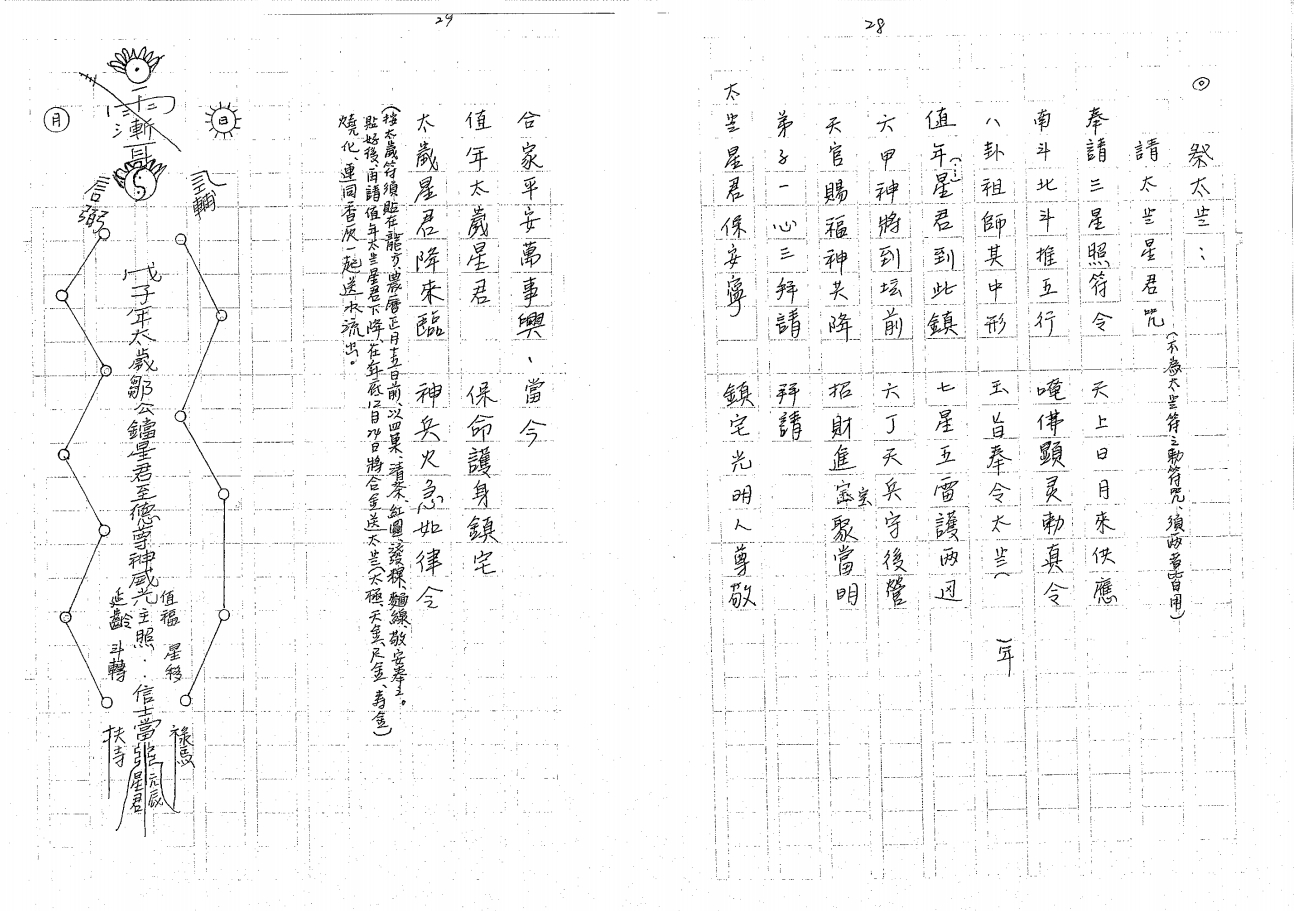 28
祭太岁：
請太岁星君咒
(不為太岁符之勅符咒、須兩者皆用)
奉請三星照符令 天上日月來供應
南斗北斗推五行 唵佛顯灵勅真令
八卦祖師其中形 玉旨奉令太岁( )年
值年星君到此鎮 七星五雷護兩边
六甲神將到坛前 六丁天兵守後營
天官賜福神共降 招財進宝聚當明
弟子一心三拜請 拜請
太岁星君保安寧 鎮宅光明人尊敬
29
合家平安萬事興、當今
值年太歲星君 保命護身鎮宅
太歲星君降來臨 神兵火急如律令
(按太歲符須貼在龍方、農曆正月十五日前、以四菓、清茶、紅圓、發粿、麵線、敬安奉之。
貼好後、再請值年太岁星君下降、在年底12月24日將合金送太岁(太極、天金、尺金、壽金)
燒化、連同香灰一起送水流出。
日
月
輔
弼
戊子年太歲鄒公鐺星君至德尊神威光主照：信士當
值福 星移
延齡 斗轉
祿馬
扶持
元辰
星君